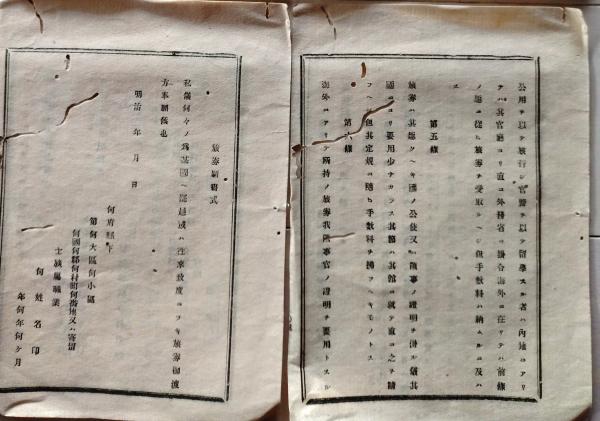 公用ヲ以テ旅行シ官費ヲ以テ留學スル者ハ内地ニアリ
テハ其官廳ヨリ直ニ外務省ニ掛合海外ニ在リテハ前條
ノ通ニ從ヒ旅券ヲ受取ルヘシ但手數料ハ納ムルニ及ハ
ス
第五條
旅券ハ其趣クヘキ國ノ公使又ハ領事ノ證明ヲ得ル儀其
國ニヨリ要用少ナカラス其節ハ其館ニ就テ直ニ之ヲ請
フヘシ但其定規ニ隨ヒ手數料ヲ拂フヘキモノトス
第六條
海外ニアリテ所持ノ旅券我領事官ノ證明ヲ要用トスル
旅券願書式
私儀何々ノ爲某國ヘ罷越度
方奉願候也
明治 年 月 日
何府縣下
第何大區何小區
何國何郡何村町何番地又ハ寄留
士族屬職業
何姓名印
年何年何ヶ月